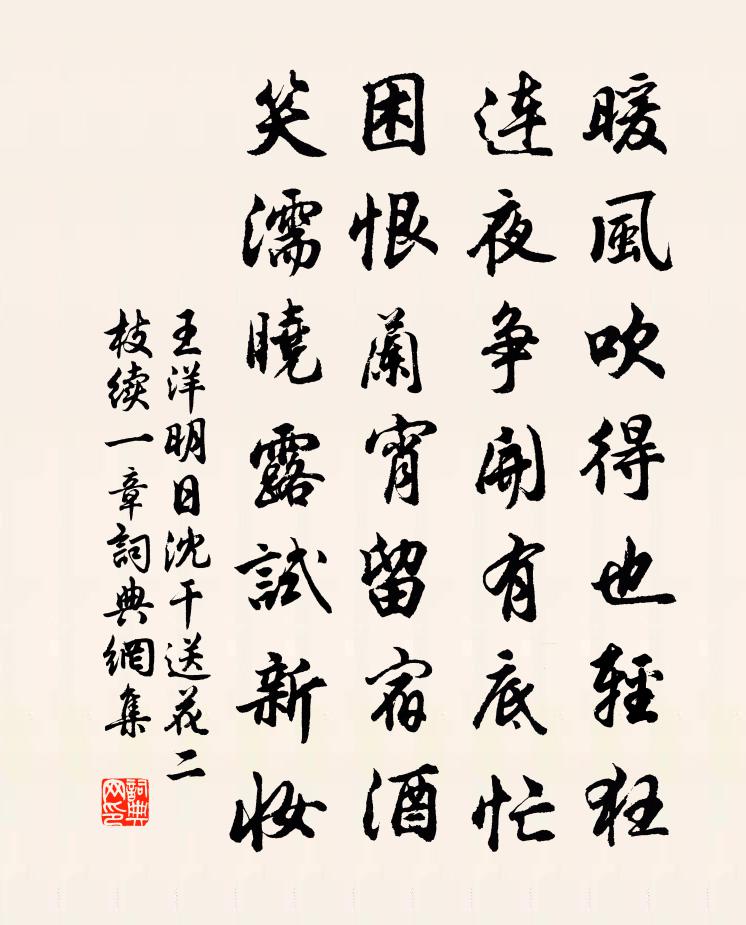 暖風吹得也輕狂
連夜争開有底忙
困恨蘭宵留宿酒
笑濡曉露試新妝
王洋明日沈干送花二
枝续一章詞典網集
詞典网印